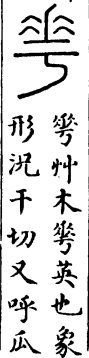 𠌶
𠌶艸木𠌶英也象
形況干切又呼瓜